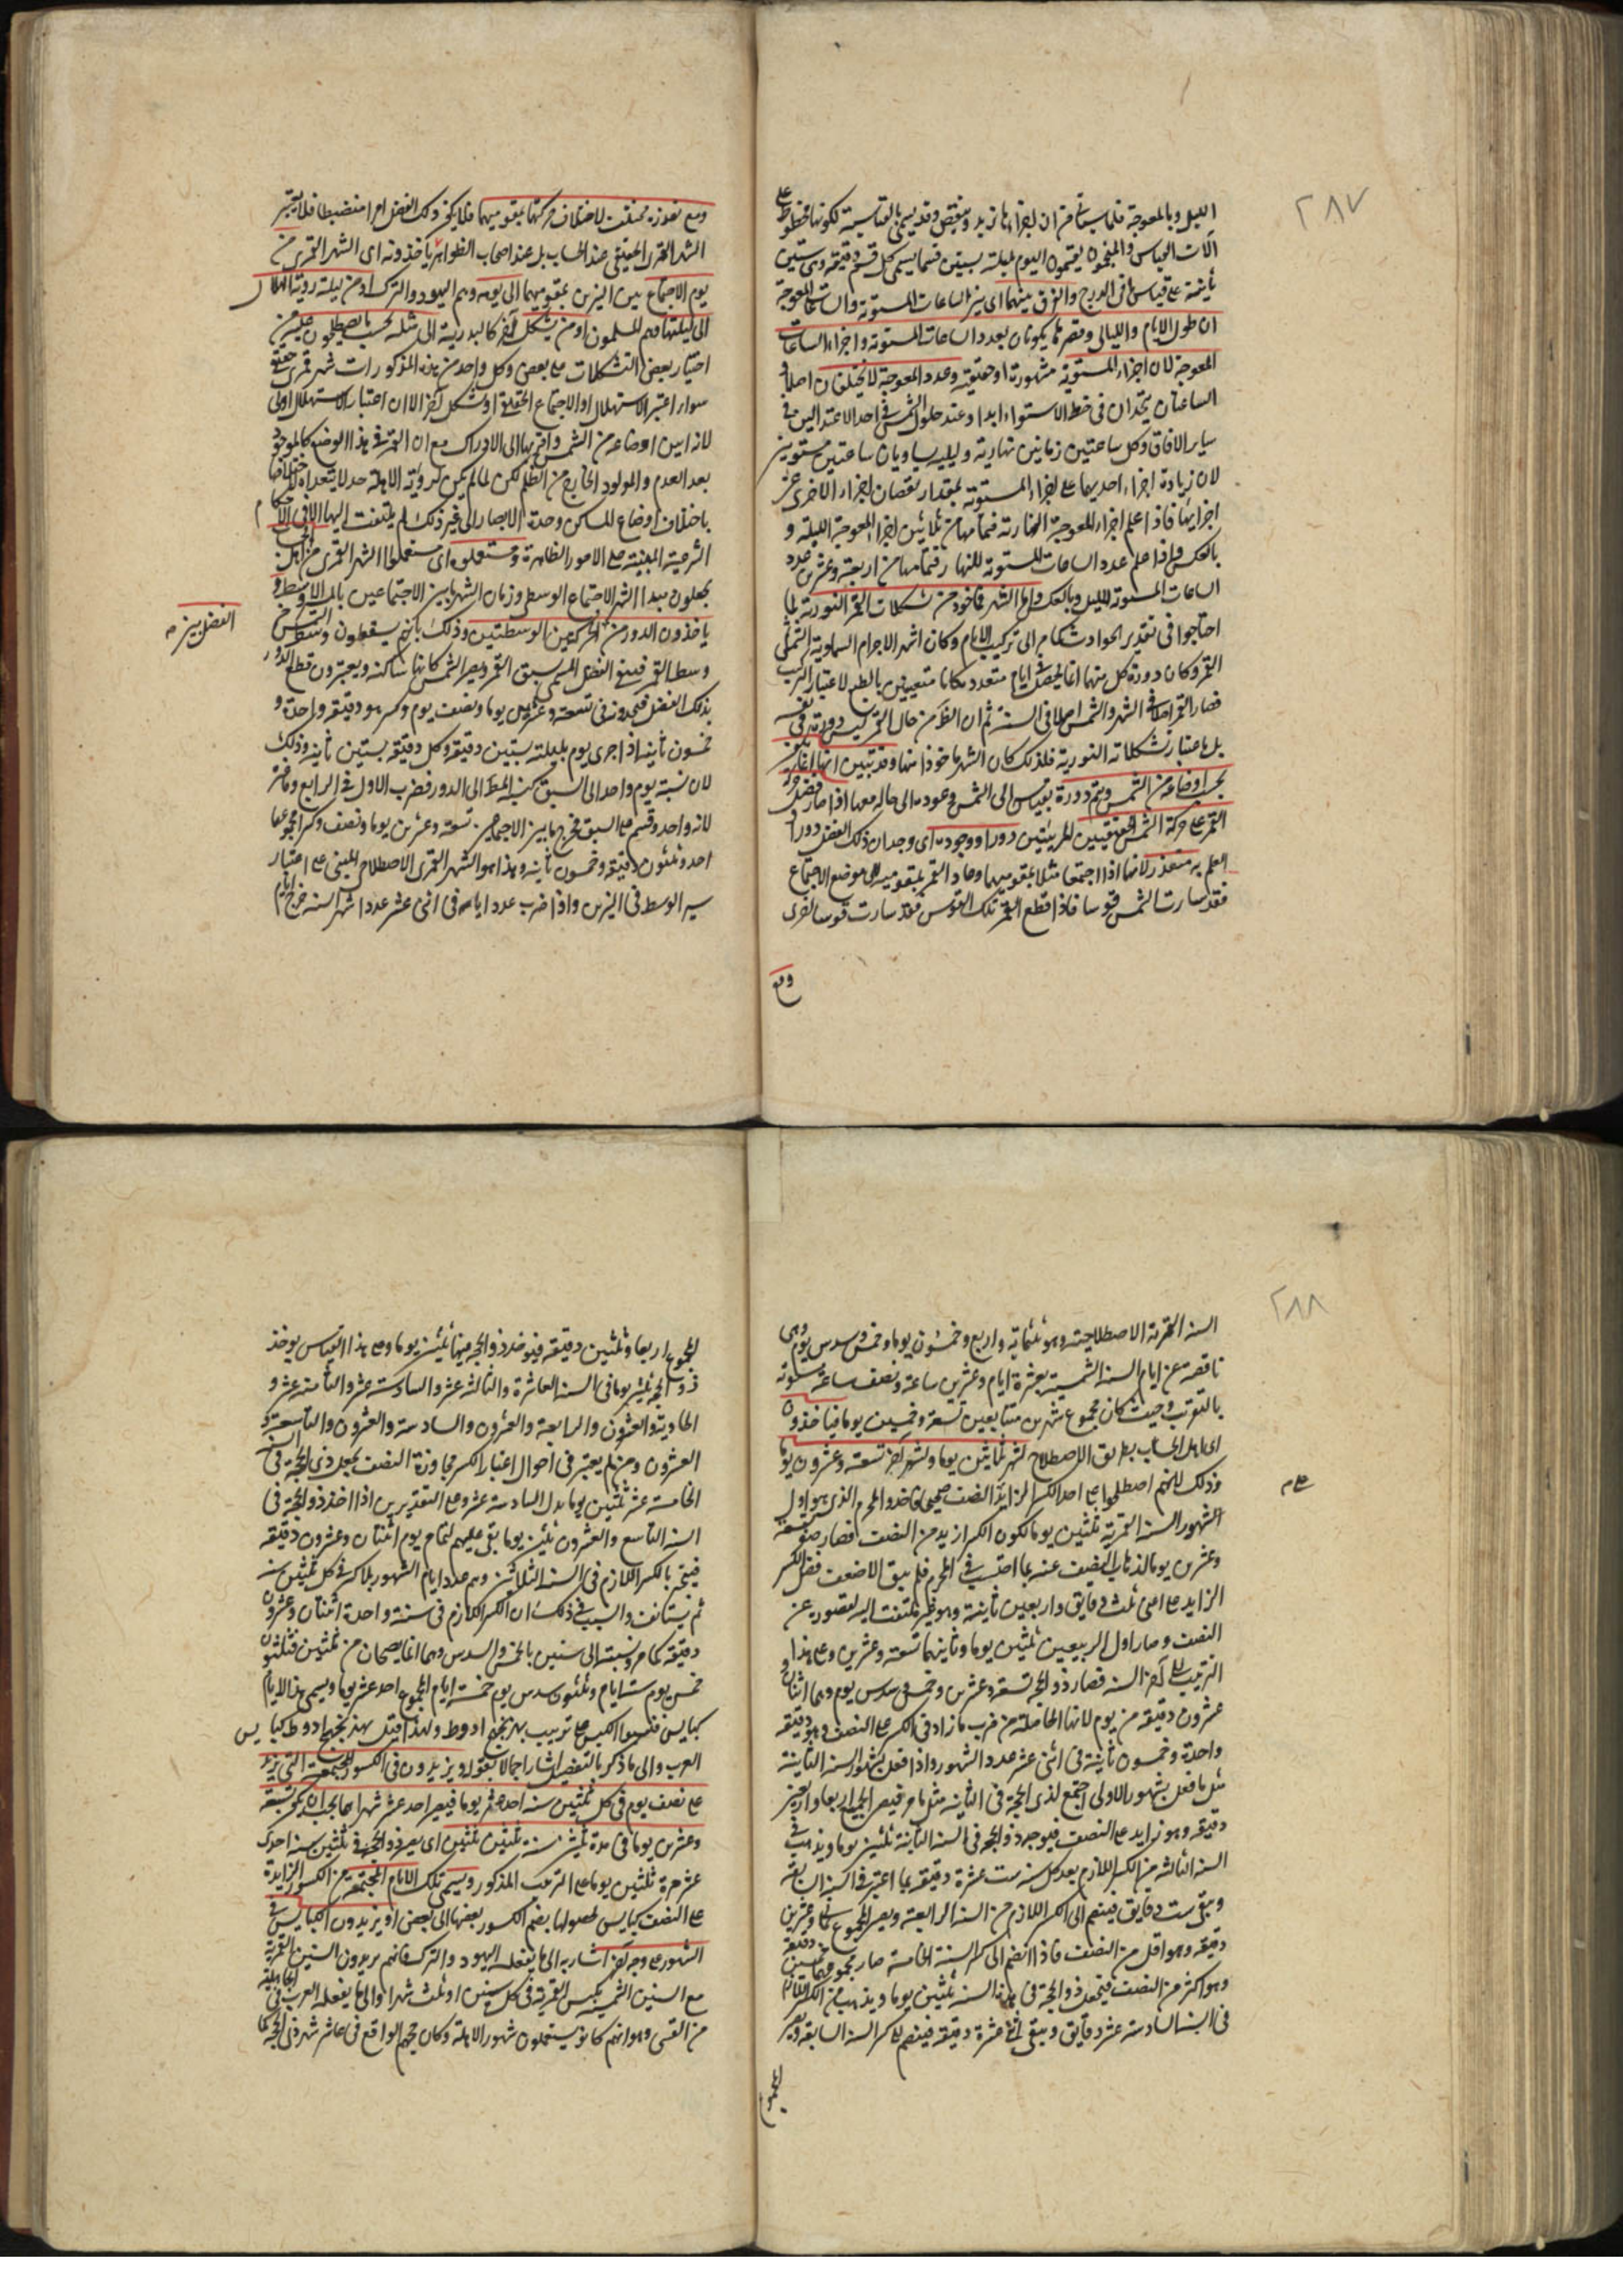 ٢٨٧
الليل وبالمعوجة فلما سيأتي من ان اجزاءها تزيد وتنقص وقد يسمى بالقياسية لكونها مخطوطة على
آلات القياس والمنجمون يقسمون اليوم بليلته بستين قسما يسمى كل قسم دقيقة وهي ستين
ثانية على قياس ما في الدرج والفرق بينهما اى بين الساعات المستوية والساعات المعوجة
ان طول الايام والليالى وقصرهما يكونان بعدد الساعات المستوية واجزاء الساعات
المعوجة لان اجزاء المستوية مشهورة او حقيقية وعدد المعوجة لا يختلفان اصلا و
الساعتان يتحدان فى خط الاستواء ابدا وعند حلول الشمس فى احد الاعتدالين فى
ساير الافاق وكل ساعتين زمانيتين نهارية وليلية يساويان ساعتين مستويتين
لان زيادة اجزاء احديهما على اجزاء المستوية بمقدار نقصان اجزاء الاخرى عن
اجزائها فاذا علم اجزاء المعوجة النهارية فتمامها من ثلاثين اجزاء المعوجة الليلية و
بالعكس واذا علم عدد الساعات المستوية للنهار فتمامها من اربعة وعشرين عدد
الساعات المستوية لليل وبالعكس واما الشهر فمأخوذ من تشكلات القمر النورية لما
احتاجوا فى تقدير الحوادث الى تركيب الايام وكان اشهر الاجرام السماوية الشمس و
القمر وكان دورة كل منهما انما يحصل فى ايام متعددة كانا متعينين بالطبع لاعتبار التركيب
فصار القمر اصلا فى الشهر والشمس اصلا فى السنة ثم ان الظ من حال القمر ليس دورته فى نفسه
بل باعتبار تشكلاته النورية فلذلك كان الشهر مأخوذا منها وقد تبين انها انما يختلف
بحسب اوضاعه من الشمس ويتم دورة بقياس الى الشمس وعوده الى حاله معها اذا صار فضل حركة
القمر على حركة الشمس الحقيقيتين المرئيتين دورا ووجوده اى وجدان ذلك الفضل دورا و
العلم به متعذر لانهما اذا اجتمعا مثلا بتقويميهما وعاد القمر بتقويمه الى موضع الاجتماع
فقد سارت الشمس قوسا فاذا قطع القمر تلك القوس فقد سارت قوسا اخرى
ومع
ومع تعذره مختلف لاختلاف حركتهما بتقويميهما فلا يكون ذلك الفضل امرا منضبطا فلا يعتبر
الشهر القمرى الحقيقى عند الحساب بل عند اصحاب الظواهر يأخذونه اى الشهر القمرى من
يوم الاجتماع بين النيرين بتقويميهما الى يومه وهم اليهود والترك او من ليلة رؤية الهلال
الى ليلتها وهم المسلمون او من تشكل آخر كالبدرية الى مثله بحسب ما يصطلحون عليه من
اختيار بعض التشكلات على بعض وكل واحد من هذه المذكورات شهر قمرى حقيقى
سواء اعتبر الاستهلال او الاجتماع الحقيقى او تشكل آخر الا ان اعتبار الاستهلال اولى
لانه ابين اوضاعه من الشمس واقربها الى الادراك مع ان القمر فى هذا الوضع كالموجود
بعد العدم والمولود الخارج من الظلم لكن لما لم يكن لرؤية الاهلة حد لا يتعداه لاختلافها
باختلاف اوضاع المساكن وحدة الابصار الى غير ذلك لم يلتفت اليها الا فى الاحكام
الشرعية المبنية على الامور الظاهرة ومستعملوه اى مستعملوا الشهر القمرى من اهل الحساب
يجعلون مبدأ الشهر الاجتماع الوسطى وزمان الشهر ما بين الاجتماعين بالمسير الاوسط و
يأخذون الدور من الحركتين الوسطيتين وذلك بانهم يسقطون وسط الشمس من
الفضل بين م
وسط القمر فيبقى الفضل المسمى بسبق القمر ويصير الشمس كانها ساكنة ويعتبرون قطع الدور
بذلك الفضل فيجدونه فى تسعة وعشرين يوما ونصف يوم وكسر هو دقيقة واحدة و
خمسون ثانية اذا جزى يوم بليلته بستين دقيقة وكل دقيقة بستين ثانية وذلك
لان نسبة يوم واحد الى السبق كنسبة المط الى الدور فضرب الاول فى الرابع وما غيره
لانه واحد وقسم على السبق فخرج ما بين الاجتماعين تسعة وعشرين يوما ونصف وكسر مجموعها
احد وثلثون دقيقة وخمسون ثانية وهذا هو الشهر القمرى الاصطلاحى المبنى على اعتبار
سير الوسط فى النيرين واذا ضرب عدد ايامه فى اثنى عشر عدد اشهر السنة خرج ايام
٢٨٨
السنة القمرية الاصطلاحية وهو ثلثمائة واربع وخمسون يوما وخمس وسدس يوم وهى
ناقصة عن ايام السنة الشمسية بعشرة ايام وعشرين ساعة ونصف ساعة مستوية
بالتقريب وحيث كان مجموع شهرين متتابعين تسعة وخمسين يوما فيأخذون
اى اهل الحساب بطريق الاصطلاح لشهر ثلثين يوما ولشهر آخر تسعة وعشرون يوما
وذلك لانهم اصطلحوا على اخذ الكسر الزايد على النصف صحيحا فاخذوا المحرم الذى هو اول
على م
الشهور السنة القمرية ثلثين يوما لكون الكسر ازيد من النصف فصار صفر تسعة
وعشرين يوما لذهاب النصف عنه بما احتسب فى المحرم فلم يبق الا ضعف فضل الكسر
الزايد على اعنى ثلث دقايق واربعين ثانية وهو ظ لم يلتفت اليه لقصوره عن
النصف وصار اول الربيعين ثلثين يوما وثانيهما تسعة وعشرين وعلى هذا و
الترتيب الى آخر السنة فصار ذو الحجة تسعة وعشرين وخمس وسدس يوم وهما اثنان و
عشرون دقيقة من يوم لانها الحاصلة من ضرب ما زاد فى الكسر على النصف وهو دقيقة
واحدة وخمسون ثانية فى اثنى عشر عدد الشهور واذا فعل بشهور السنة الثانية
مثل ما فعل بشهور الاولى اجتمع لذى الحجة فى الثانية مثل ما مر فيصير الجميع اربعا واربعين
دقيقة وهو زايد على النصف فيوجد ذو الحجة فى السنة الثانية ثلثين يوما ويذهب فى
السنة الثالثة من الكسر اللازم بعد كل سنة ست عشرة دقيقة بما اعتبر فى السنة السابقة
ويبقى ست دقايق فيضم الى الكسر اللازم من السنة الرابعة ويصير المجموع ثمانى وعشرين
دقيقة وهو اقل من النصف فاذا انضم الى كسر السنة الخامسة صار مجموعهما خمسين دقيقة
وهو اكثر من النصف فيجعل ذو الحجة فى هذه السنة ثلثين يوما ويذهب من الكسر اللازم
فى السنة السادسة عشر دقايق ويبقى اثنى عشرة دقيقة فينضم الى كسر السنة السابعة ويصير
المجموع
المجموع اربعا وثلثين دقيقة فيؤخذ ذو الحجة فيها ثلثين يوما وعلى هذا القياس يوخذ
ذو الحجة ثلثين يوما فى السنة العاشرة والثالثة عشر والسادسة عشر والثامنة عشر و
الحادية والعشرون والرابعة والعشرون والسادسة والعشرون والتاسعة و
العشرون ومن لم يعتبر فى احوال اعتبار الكسر مجاوزة النصف يجعل ذى الحجة فى السنة
الخامسة عشر ثلثين يوما بدل السادسة عشر وعلى التقديرين اذا اخذ ذو الحجة فى
السنة التاسع والعشرون ثلثين يوما بقى عليهم لتمام يوم اثنتان وعشرون دقيقة
فينجبر بالكسر اللازم فى السنة الثلاثين ويتم عدد ايام الشهور بلا كسر فى كل ثلثين سنة
ثم يستأنف والسبب فى ذلك ان الكسر اللازم فى سنة واحدة اثنتان وعشرون
دقيقة كما مر ونسبته الى ستين بالخمس والسدس وهما انما يصحان من ثلثين فثلثون
خمس يوم ستة ايام وثلثون سدس يوم خمسة ايام المجموع احد عشر يوما ويسمى هذه الايام
كبايس فقسموا الكبس على ترتيب بهزيجهح ادوط ولهذا قيل بهزيجهح ادوط كبايس
العرب والى ما ذكر بالتفصيل اشار اجمالا بقوله ويزيدون فى الكسور المجتمعة التى تزيد
على نصف يوم فى كل ثلثين سنة احد عشر يوما فيصير احد عشر شهرا مما يجب ان يكون تسعة
وعشرين يوما فى مدة ثلثين سنة ثلثين ثلثين اى يصير ذو الحجة فى ثلثين سنة احدى
عشر مرة ثلثين يوما على الترتيب المذكور ويسمى تلك الايام المجتمعة من الكسور الزايدة
على النصف كبايس لحصولها بضم الكسور بعضها الى بعض او يزيدون الكبايس فى
الشهور على وجه آخر اشار به الى ما يفعله اليهود والترك فانهم يريدون السنين القمرية
مع السنين الشمسية بكبس القمرية فى كل سنين او ثلث شهرا والى ما يفعله العرب فى الجاهلية
من النسى وهو انهم كانو يستعملون شهور الاهلة وكان حجهم الواقع فى عاشر شهر ذى الحجة كما